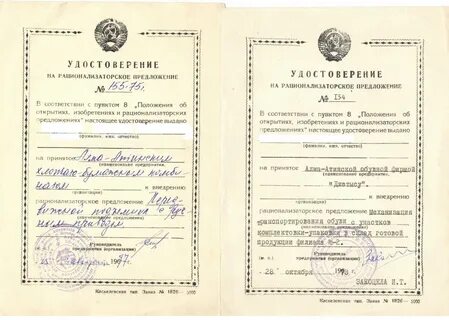 УДОСТОВЕРЕНИЕ
НА РАЦИОНАЛИЗАТОРСКОЕ ПРЕДЛОЖЕНИЕ
№ 155-75г.
В соответствии с пунктом 8 „Положения об
открытиях, изобретениях и рационализаторских
предложениях" настоящее удостоверение выдано
(фамилия, имя, отчество)
на принятое Алма-Атинским
(наименование предприятия,
хлопчато-бумажным комбинатом
организации)
к внедрению
рационализаторское предложение
(наименование предложения)
Руководитель
предприятия
19 77 г.
Каскеленская тип. Заказ № 1826—5000
УДОСТОВЕРЕНИЕ
НА РАЦИОНАЛИЗАТОРСКОЕ ПРЕДЛОЖЕНИЕ
№ 134
В соответствии с пунктом 8 „Положения об
открытиях, изобретениях и рационализаторских
предложениях" настоящее удостоверение выдано
(фамилия, имя, отчество)
на принятое Алма-Атинской обувной фирмой
(наименование предприятия,
"Джетысу" к внедрению
организация)
рационализаторское предложение Механизация
транспортирования обуви с участков
(наименование предложения)
комплектовки-упаковки в склад готовой
продукции филиала №-2.
Руководитель
предприятия
м. п.
28 октября 1978 г.
ЗАКОЦЕЛА Н.Т.
Каскеленская тип. Заказ № 1826—5000